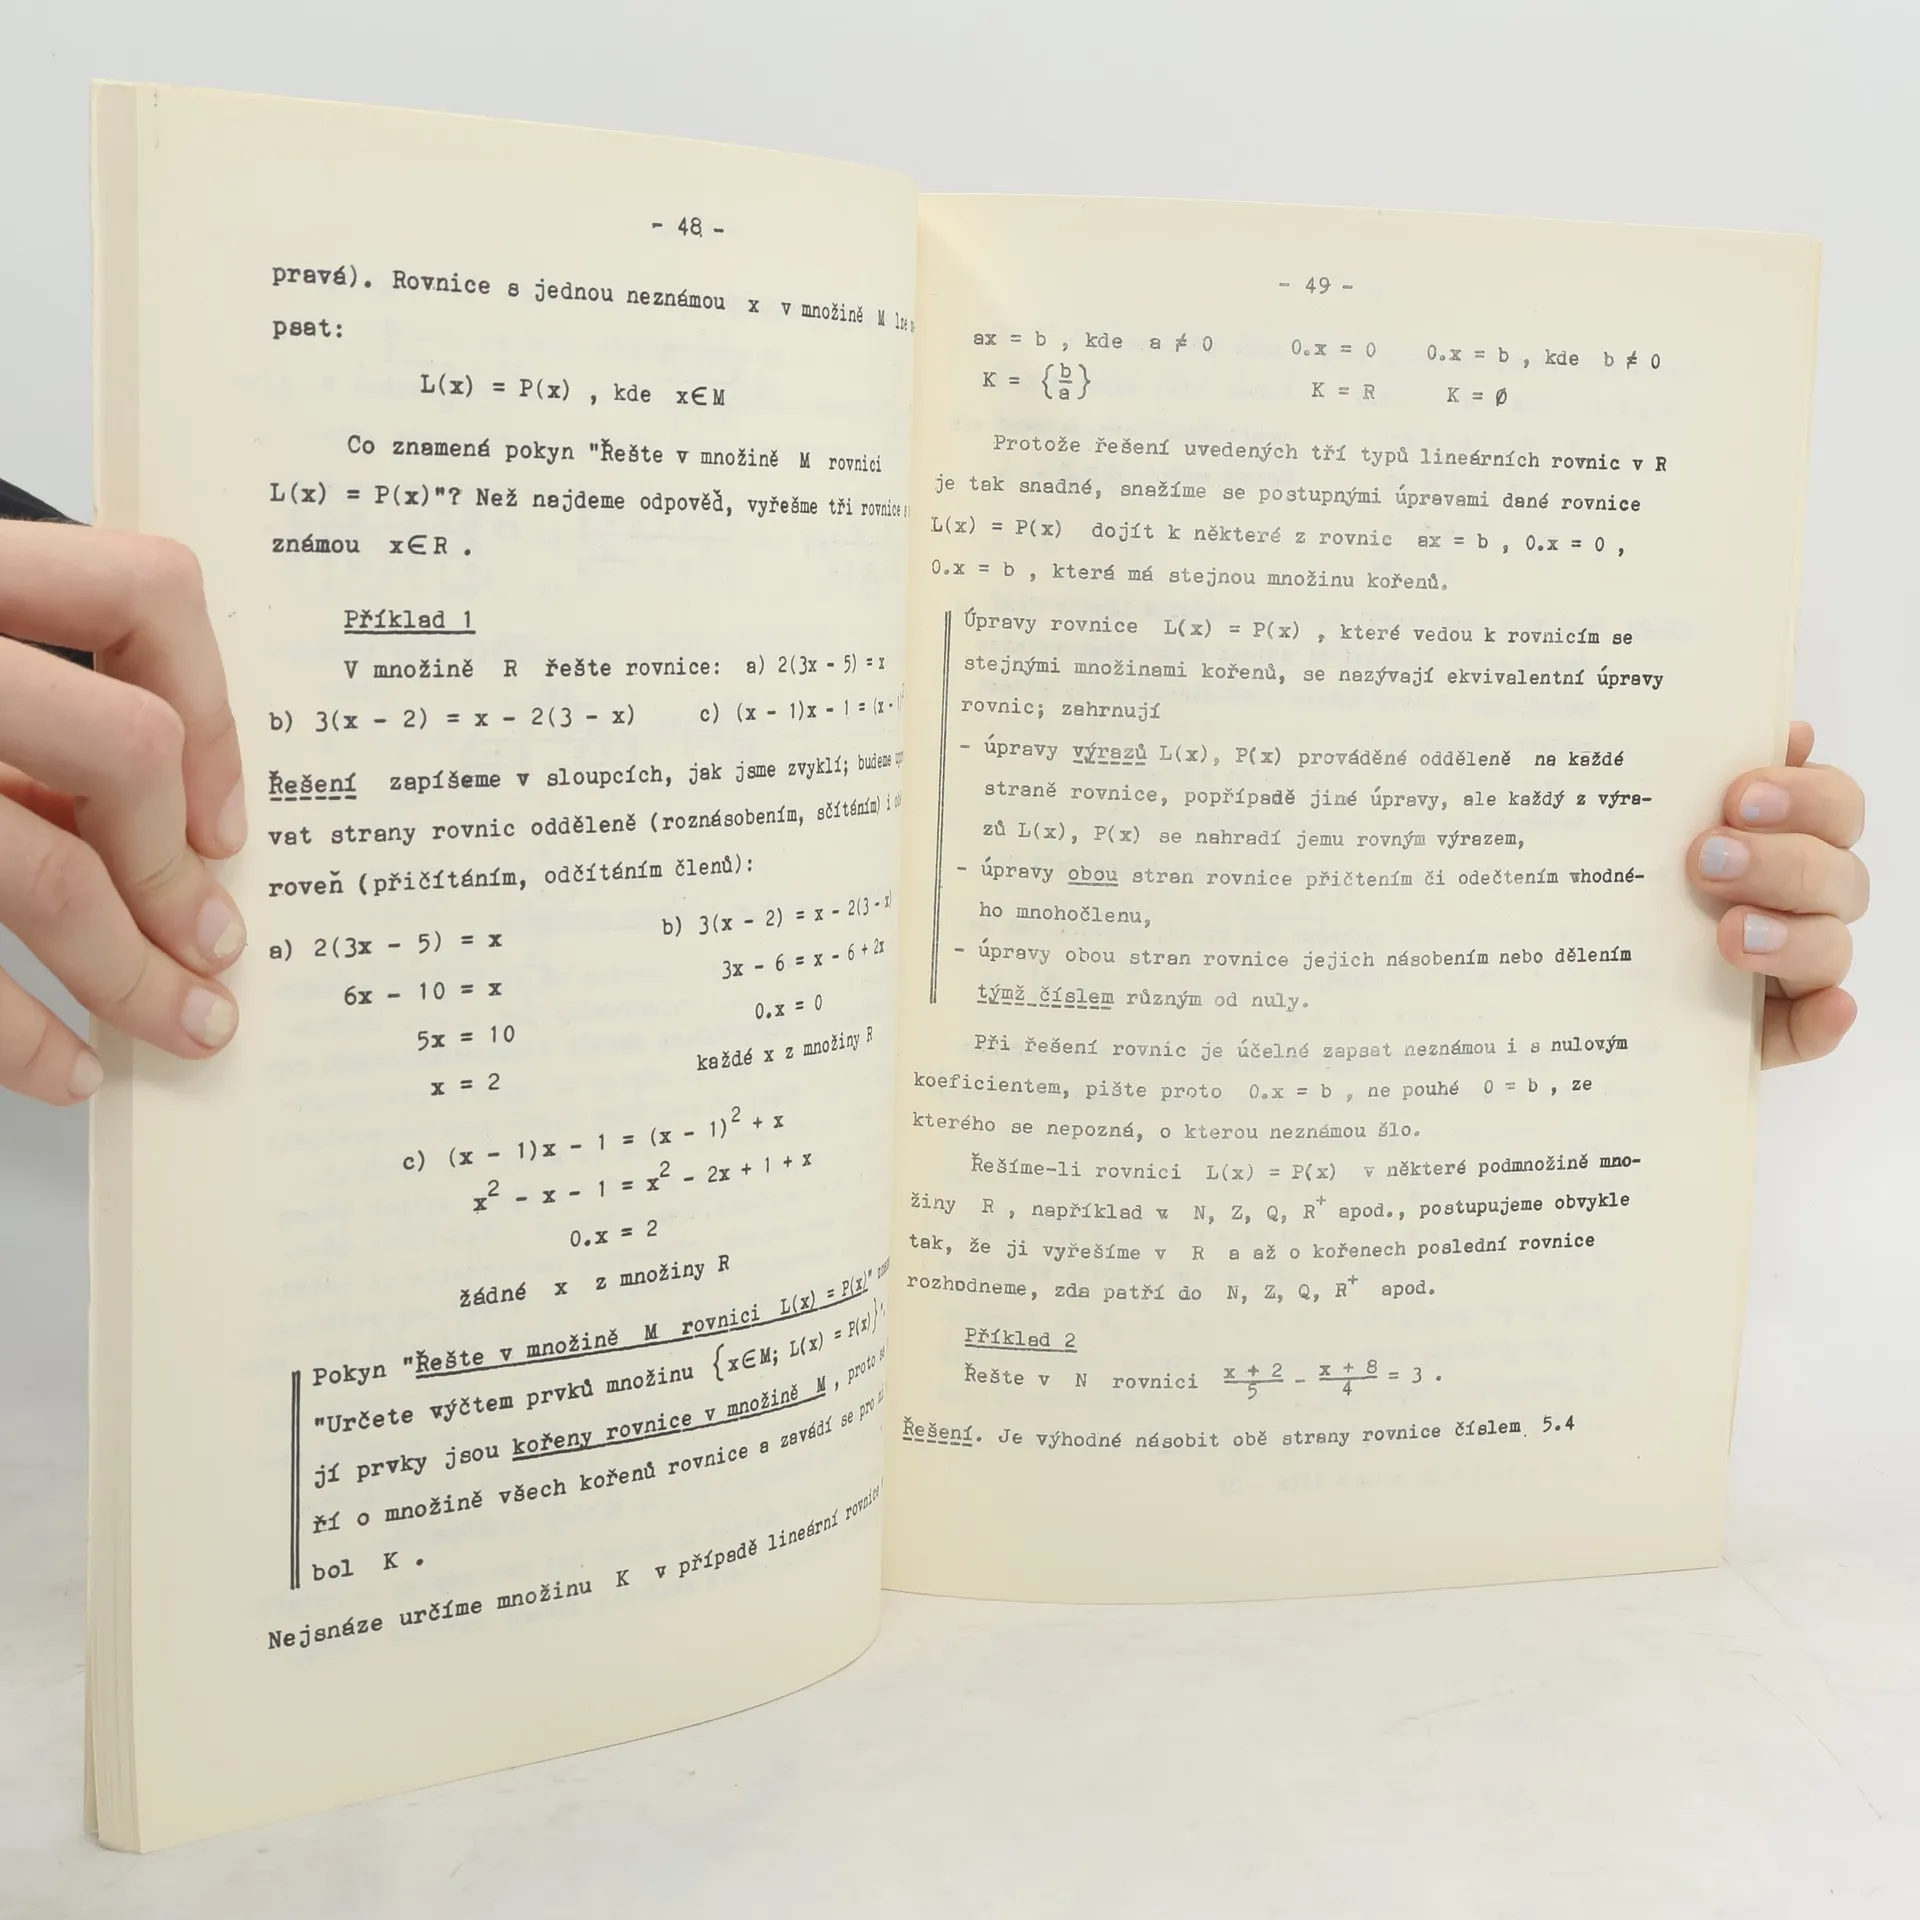 - 48 -
pravá). Rovnice s jednou neznámou x v množině M lze
psat:
L(x) = P(x) , kde x∈M
Co znamená pokyn "Řešte v množině M rovnici
L(x) = P(x)"? Než najdeme odpověď, vyřešme tři rovnice
známou x∈R .
Příklad 1
V množině R řešte rovnice: a) 2(3x - 5) = x
b) 3(x - 2) = x - 2(3 - x) c) (x - 1)x - 1 = (x - 1)
Řešení zapíšeme v sloupcích, jak jsme zvyklí; budeme
vat strany rovnic odděleně (roznásobením, sčítáním) i
roveň (přičítáním, odčítáním členů):
a) 2(3x - 5) = x
6x - 10 = x
5x = 10
x = 2
b) 3(x - 2) = x - 2(3 - x)
3x - 6 = x - 6 + 2x
0.x = 0
každé x z množiny R
c) (x - 1)x - 1 = (x - 1)² + x
x² - x - 1 = x² - 2x + 1 + x
0.x = 2
žádné x z množiny R
Pokyn "Řešte v množině M rovnici L(x) = P(x)"
"Určete výčtem prvků množinu {x∈M; L(x) = P(x)}",
jí prvky jsou kořeny rovnice v množině M , proto
ří o množině všech kořenů rovnice a zavádí se pro
bol K .
Nejsnáze určíme množinu K v případě lineární rovnice
- 49 -
ax = b , kde a ≠ 0 0.x = 0 0.x = b , kde b ≠ 0
K = {b/a} K = R K = ∅
Protože řešení uvedených tří typů lineárních rovnic v R
je tak snadné, snažíme se postupnými úpravami dané rovnice
L(x) = P(x) dojít k některé z rovnic ax = b , 0.x = 0 ,
0.x = b , která má stejnou množinu kořenů.
Úpravy rovnice L(x) = P(x) , které vedou k rovnicím se
stejnými množinami kořenů, se nazývají ekvivalentní úpravy
rovnic; zahrnují
- úpravy výrazů L(x), P(x) prováděné odděleně na každé
straně rovnice, popřípadě jiné úpravy, ale každý z výra-
zů L(x), P(x) se nahradí jemu rovným výrazem,
- úpravy obou stran rovnice přičtením či odečtením vhodné-
ho mnohočlenu,
- úpravy obou stran rovnice jejich násobením nebo dělením
týmž číslem různým od nuly.
Při řešení rovnic je účelné zapsat neznámou i s nulovým
koeficientem, pište proto 0.x = b , ne pouhé 0 = b , ze
kterého se nepozná, o kterou neznámou šlo.
Řešíme-li rovnici L(x) = P(x) v některé podmnožině mno-
žiny R , například v N, Z, Q, R⁺ apod., postupujeme obvykle
tak, že ji vyřešíme v R a až o kořenech poslední rovnice
rozhodneme, zda patří do N, Z, Q, R⁺ apod.
Příklad 2
Řešte v N rovnici (x + 2)/5 - (x + 8)/4 = 3 .
Řešení. Je výhodné násobit obě strany rovnice číslem 5.4